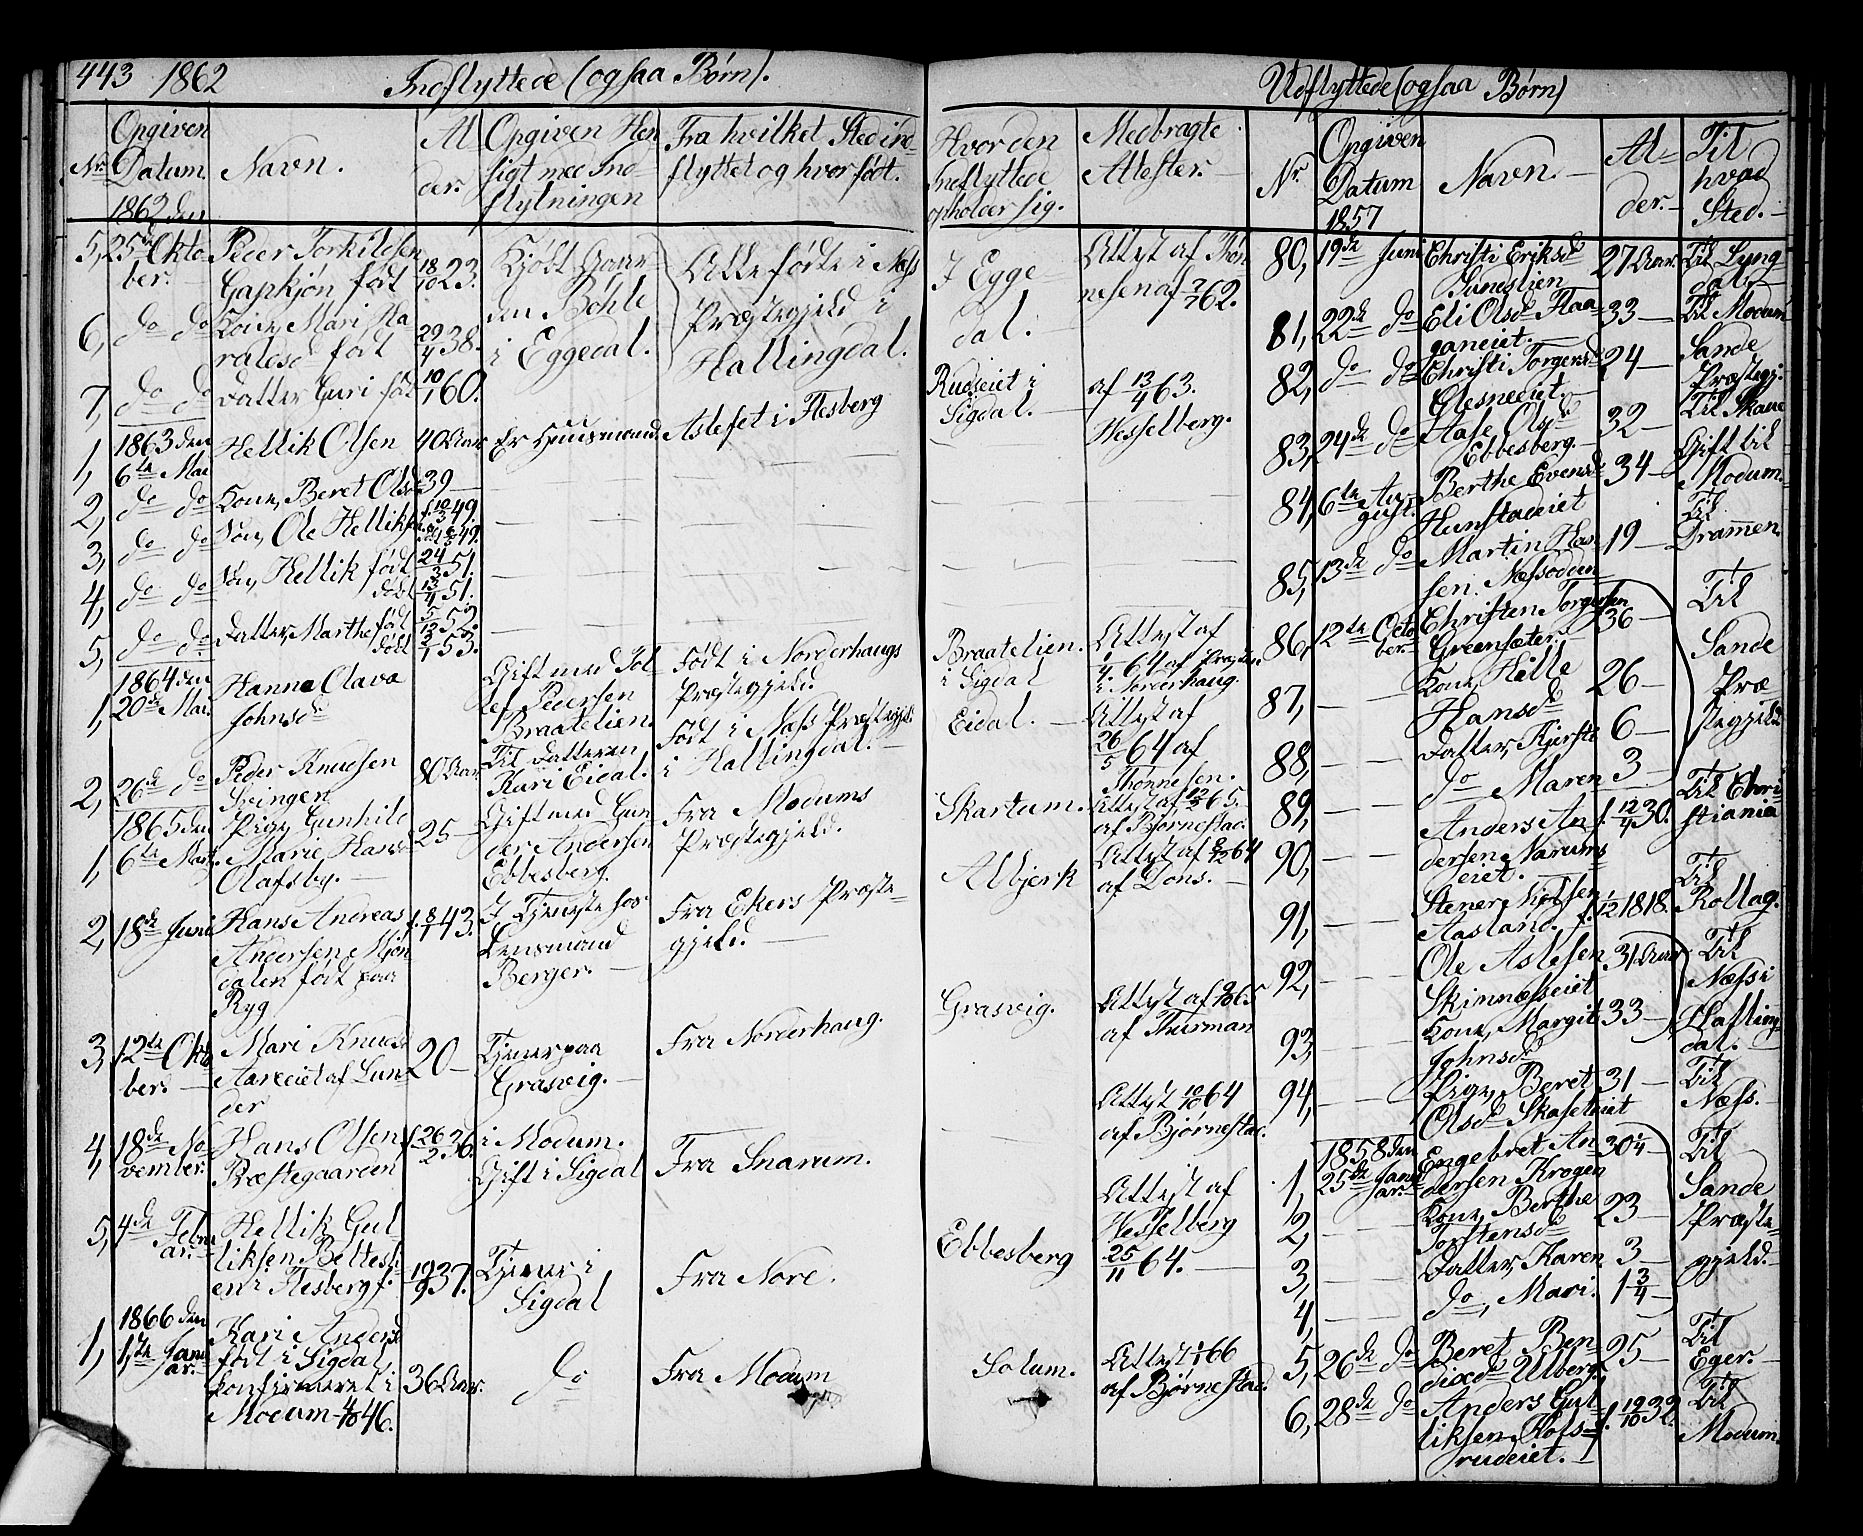 443 1862 Indflyttede (ogsaa Børn).
Nr. Opgiven Datum 1862 den
Navn.
Alder.
Opgiven Hensigt med Indflytningen
Fra hvilket Sted indflyttet og hvor født.
Hvor den Indflyttede opholder sig.
Medbragte Attester.
5, 25de Oktober. Peder Torkildsen Gapkjøn født 18/10 23.
Kjøbt Gaarden Bøhle i Eggedal.
Alle fødte i Næss Præstegjeld i Hallingdal.
I Eggedal.
Attest af Thønnesen af 2/7 62.
6, do do Kone, Mari Haralds født 29/4 38.
7, do do Datter Guri født 10/1 60.
1863 den
1, 6te Mai Hellik Olsen 40 Aar Er Huusmand Aslefet i Flesberg
Rudseiet i Sigdal.
af 13/4 63. Hesselberg.
2, do do Kone, Beret Olsd 39 —
3, do do Søn, Ole Helliksen
4, do do Søn, Hellik født 24/3 51. døbt 13/4 51.
5, do do Datter, Marthe født 5/12 52. døbt 13/1 53.
1864 den
1, 20de Mai Hanna Olava Johnsd
Gift med Tollef Pedersen Braatelien.
Født i Norderhaugs Præstegjeld.
Braatelien i Sigdal
Attest af 4/4 64 af Præsten i Norderhaug.
2, 26de do Peder Knudsen Svingen 80 Aar
Til Datteren Kari Eidal.
Født i Næss Præstegjeld i Hallingdal.
Eidal.
Attest af 26/5 64 af Thønnesen.
1865 den
1, 6te Marts Pige, Gunhild Marie Hansd Olafsby. 25 —
Gift med Gunder Andersen Ebbesberg.
Fra Modums Præstegjeld.
Skartum.
Attest af 12/3 65. af Bjørnestad.
2, 18de Juni Hans Andreas Andersen Mjøndalen født paa Ryg f. 8/1 43.
I Tjeneste hos Lensmand Berger.
Fra Ekers Præstegjeld.
Albjerk
Attest af 8/12 64 af Dons.
3, 12te Oktober. Mari Knudsd Aareeiet af Lunder 20 —
Tjener paa Grasvig.
Fra Norderhaug.
Grasvig.
Attest af 9/10 65 af Thurman
4, 18de November. Hans Olsen Præstegaarden f. 26/2 36.
i Modum. Gift i Sigdal
Fra Snarum.
Attest 10/10 64 af Bjørnestad.
5, 4de Februar. Hellik Gulliksen Bekkeseteren i Flesberg f. 19/9 37.
Tjener i Sigdal
Fra Nore.
Ebbesberg
Attest af Hesselberg 25/11 64.
1866 den
1, 1te Januar. Kari Andersd født i Sigdal, konfirmeret i Modum 4/10 46. 36 Aar.
do
Fra Modum
Solum.
Attest 1/1 66 af Bjørnestad.
Udflyttede (ogsaa Børn)
Nr. Opgiven Datum 1857
Navn.
Alder.
Til hvad Sted.
80, 19de Juni Christi Eriksd Sunestien 27 Aar. Til Lyngdal.
81, 22de do Eli Olsd Flaaganeiet. 33 — Til Modum
82, do do Christi Torgersd Glesneeiet. 24 — Sande Præstegj.
83, 24de do Aase Olsd Ebbesberg. 32 — Til Skaue
84, 6te August. Berthe Evensd Hunstadeiet 34 — Gift til Modum.
85, 13de do Martin Hansen. Næssodden 19 — Til Dramen.
86, 12te October. Christen Torgersen Grønsæter. 36 — Til Sande Præstegjeld
87, — — Kone, Hille Hansd 26 —
88, — — Datter, Kjersti 6 —
do Maren 3 —
89, — — Anders Andersen, Narumseiet. f. 12/4 30. Til Christiania
90, — —
91, — — Stener Nilsen Aasland. f. 1/12 1818. Til Rollag.
92, — — Ole Aslesen Skinnæsseiet 31 Aar Til Næss i Hallingdal.
93, — — Kone, Margit Johnsd 33 —
94, — — Pige, Beret Olsd Skaseteiet 31 — Til Næss.
1858 den
1, 25de Januar. Engebret Andersen Krogen 30 1/4 Til Sande Præstegjeld.
2, — — Kone, Berthe Torstensd 23 —
3, — — Datter Karen 3 —
4, do, Mari. 1 3/4 —
5, 26de do Beret Bendixsd Ulberg, 25 — Til Eger.
6, 28de do Anders Gulliksen, Kofsrudeiet. f. 19/10 32. Til Modum.